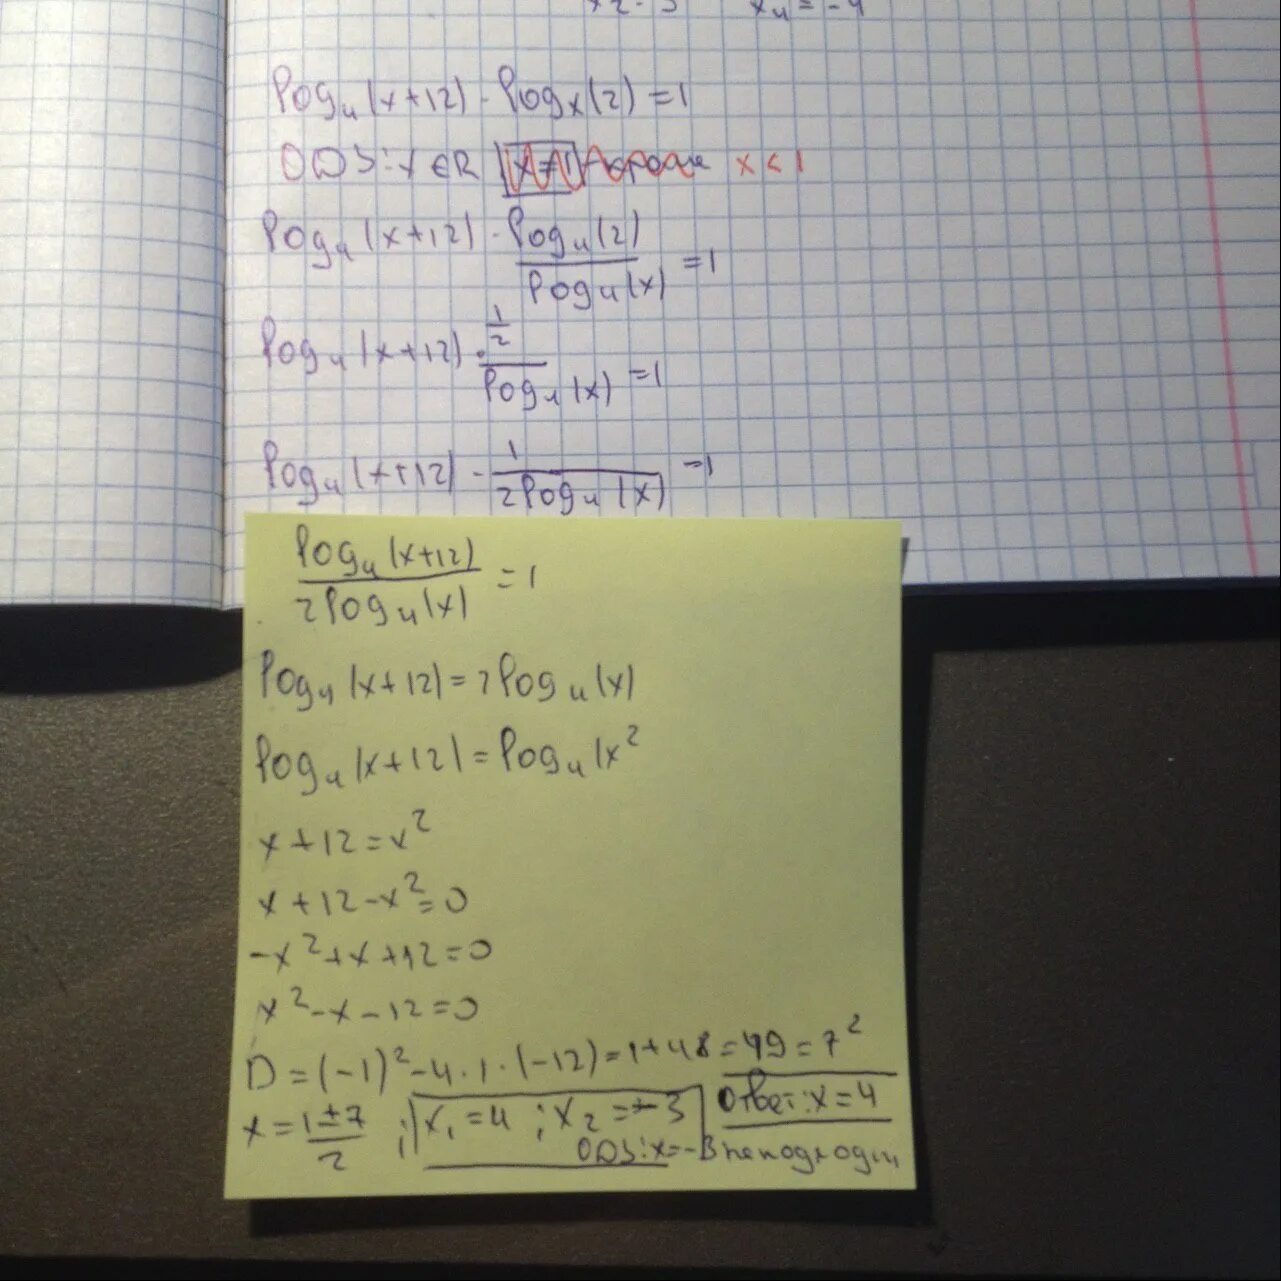 x₂ = 3 x₄ = -4
log₄(x+12) · logₓ(2) = 1
ODS: x ∈ R x < 1
log₄(x+12) · log₄(2) / log₄(x) = 1
log₄(x+12) · 1/2 / log₄(x) = 1
log₄(x+12) · 1 / 2log₄(x) = 1
log₄(x+12) / 2log₄(x) = 1
log₄(x+12) = 2log₄(x)
log₄(x+12) = log₄(x²
x+12 = x²
x+12-x² = 0
-x²+x+12 = 0
x²-x-12 = 0
D = (-1)²-4·1·(-12) = 1+48 = 49 = 7²
x = 1±7 / 2 ; x₁ = 4 ; x₂ = -3 Ответ: x = 4
ODS: x = -3 не подходит